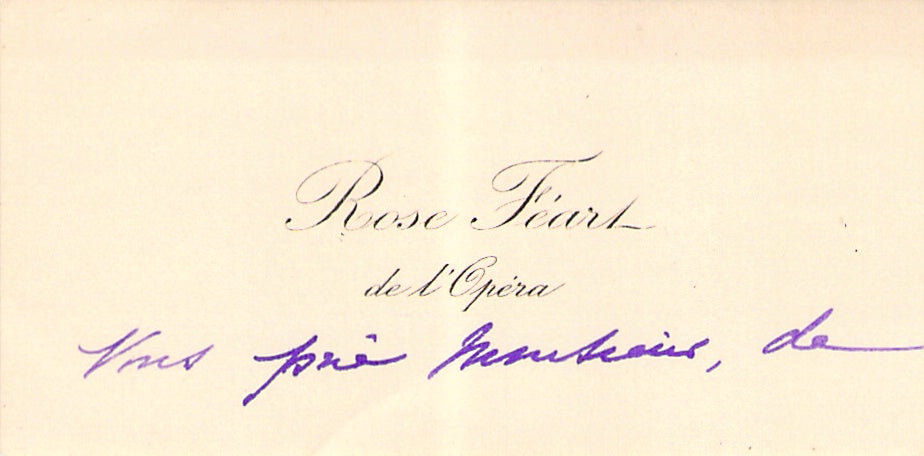 Rose Féart
de l'Opéra
Vous prie Monsieur, de